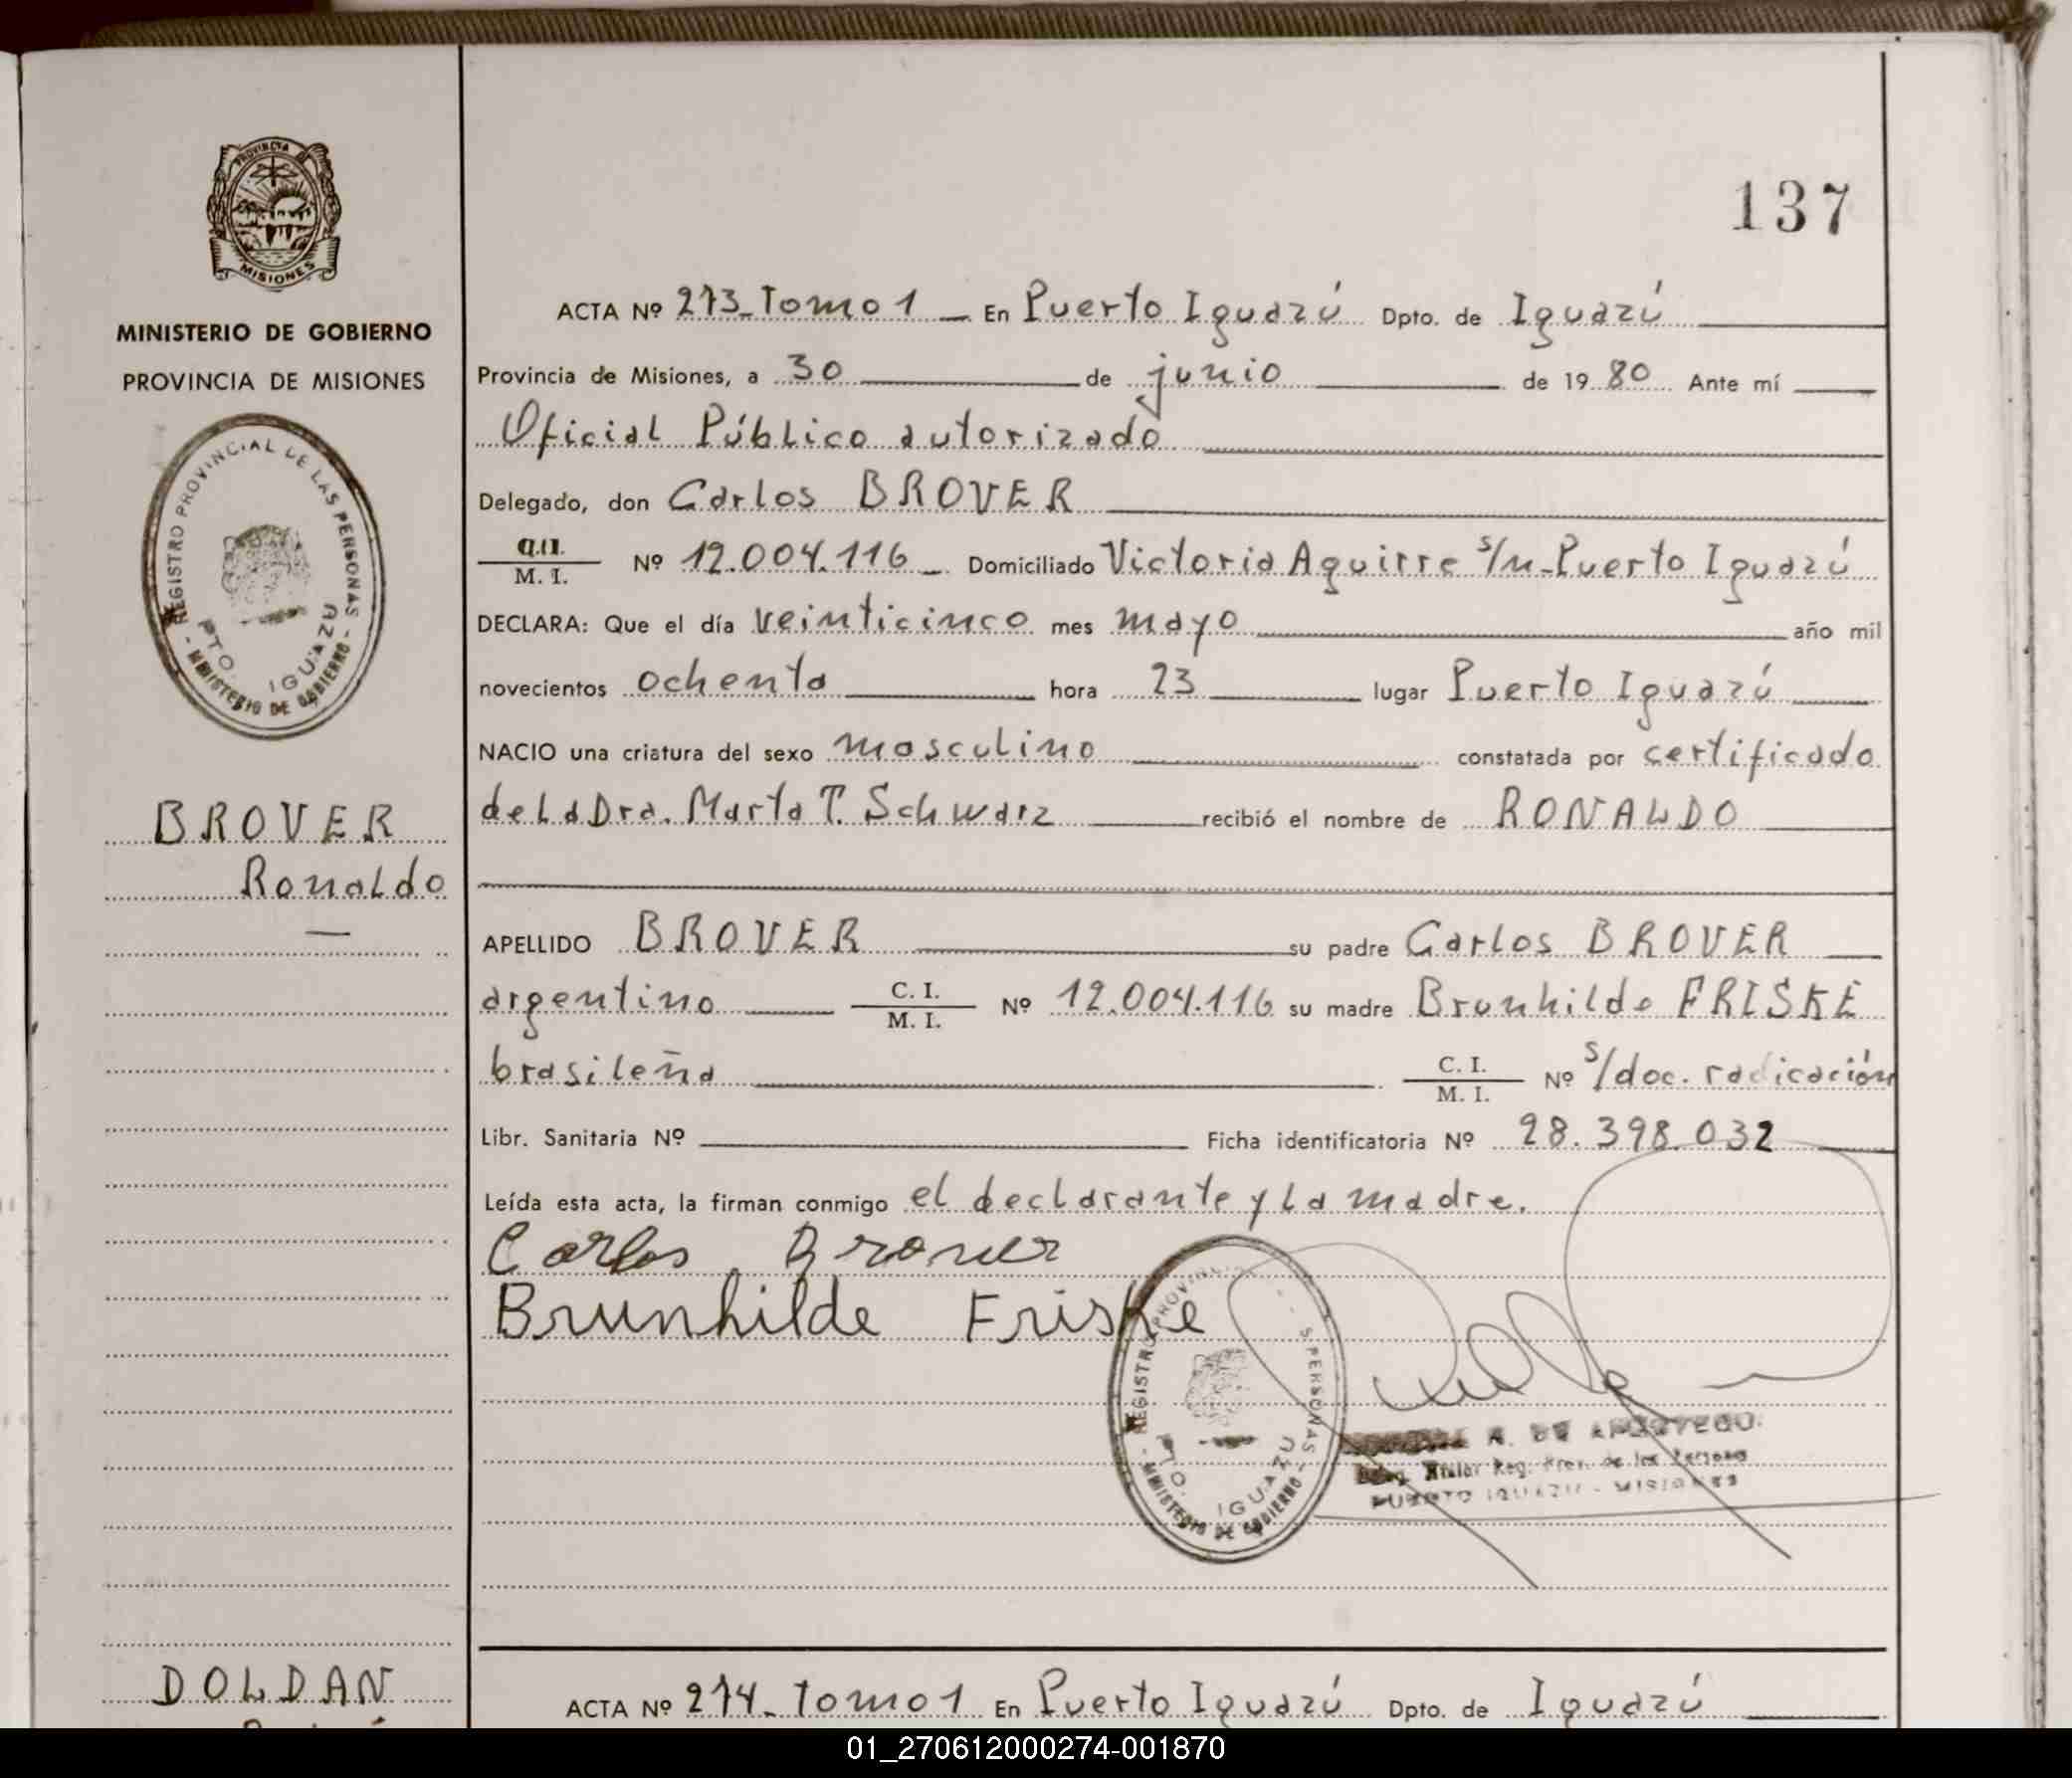 137
PROVINCIA
MISIONES
MINISTERIO DE GOBIERNO
PROVINCIA DE MISIONES
REGISTRO PROVINCIAL DE LAS PERSONAS
PTO. IGUAZU
MINISTERIO DE GOBIERNO
BROVER
Ronaldo
ACTA Nº 273 Tomo 1 En Puerto Iguazú Dpto. de Iguazú
Provincia de Misiones, a 30 de junio de 1980 Ante mí
Oficial Público autorizado
Delegado, don Carlos BROVER
M. I. Nº 12.004.116 Domiciliado Victoria Aguirre s/n-Puerto Iguazú
DECLARA: Que el día veinticinco mes mayo año mil
novecientos ochenta hora 23 lugar Puerto Iguazú
NACIO una criatura del sexo masculino constatada por certificado
de la Dra. Marta T. Schwarz recibió el nombre de RONALDO
APELLIDO BROVER su padre Carlos BROVER
argentino C. I. M. I. Nº 12.004.116 su madre Brunhilde FRISKE
brasileña C. I. M. I. Nº s/doc. radicación
Libr. Sanitaria Nº Ficha identificatoria Nº 28.398.032
Leída esta acta, la firman conmigo el declarante y la madre.
Carlos Brover
Brunhilde Friske
REGISTRO PROVINCIAL PERSONAS
PTO. IGUAZU
MINISTERIO DE GOBIERNO
Reg. Prov. de las Personas
PUERTO IGUAZU - MISIONES
DOLDAN
ACTA Nº 274 Tomo 1 En Puerto Iguazú Dpto. de Iguazú
01_270612000274-001870